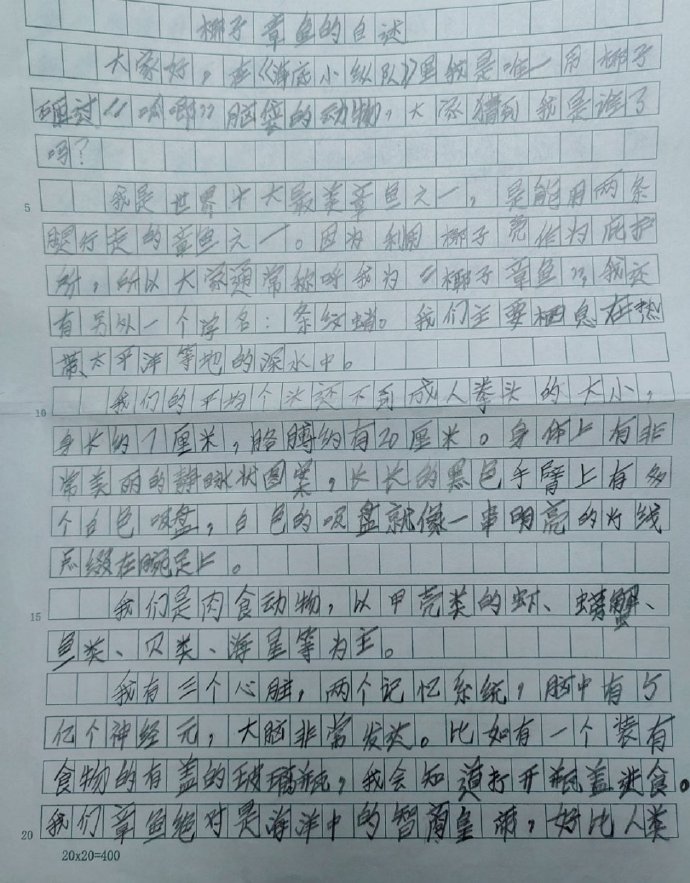 椰子章鱼的自述
大家好，在《海底小纵队》里我是唯一用椰子
砸过"呱唧"脑袋的动物，大家猜到我是谁了
吗？
5 我是世界十大最美章鱼之一，是能用两条
腿行走的章鱼之一。因为利用椰子壳作为庇护
所，所以大家通常称呼我为"椰子章鱼"，我还
有另外一个学名：条纹蛸。我们主要栖息在热
带太平洋等地的深水中。
10 我们的平均个头还不到成人拳头的大小，
身长约7厘米，胳膊约有20厘米。身体上有非
常美丽的静脉状图案，长长的黑色手臂上有多
个白色吸盘，白色的吸盘就像一串明亮的灯线
点缀在腕足上。
15 我们是肉食动物，以甲壳类的虾、螃蟹、
鱼类、贝类、海星等为主。
我有三个心脏，两个记忆系统，脑中有5
亿个神经元，大脑非常发达。比如有一个装有
食物的有盖的玻璃瓶，我会知道打开瓶盖进食。
20 我们章鱼绝对是海洋中的智商皇帝，好比人类
20x20=400